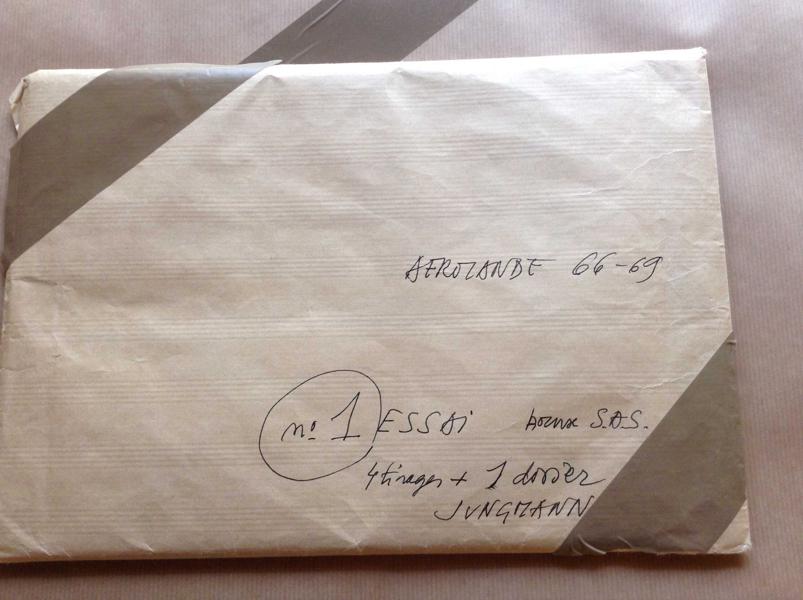 AEROLANDE 66-69
n° 1 ESSAi S.A.S.
4 tirages + 1 dossier
JUNGMANN